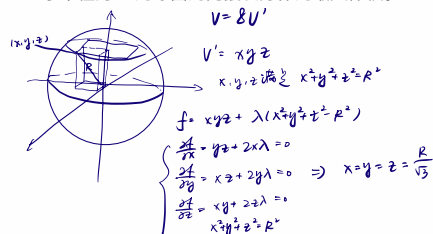 V = 8V'
(x,y,z)
R
V' = xyz
x,y,z满足 x²+y²+z²=R²
f = xyz + λ(x²+y²+z²-R²)
∂f/∂x = yz+2xλ=0
∂f/∂y = xz+2yλ=0 => x=y=z= R/√3
∂f/∂z = xy+2zλ=0
x²+y²+z²=R²